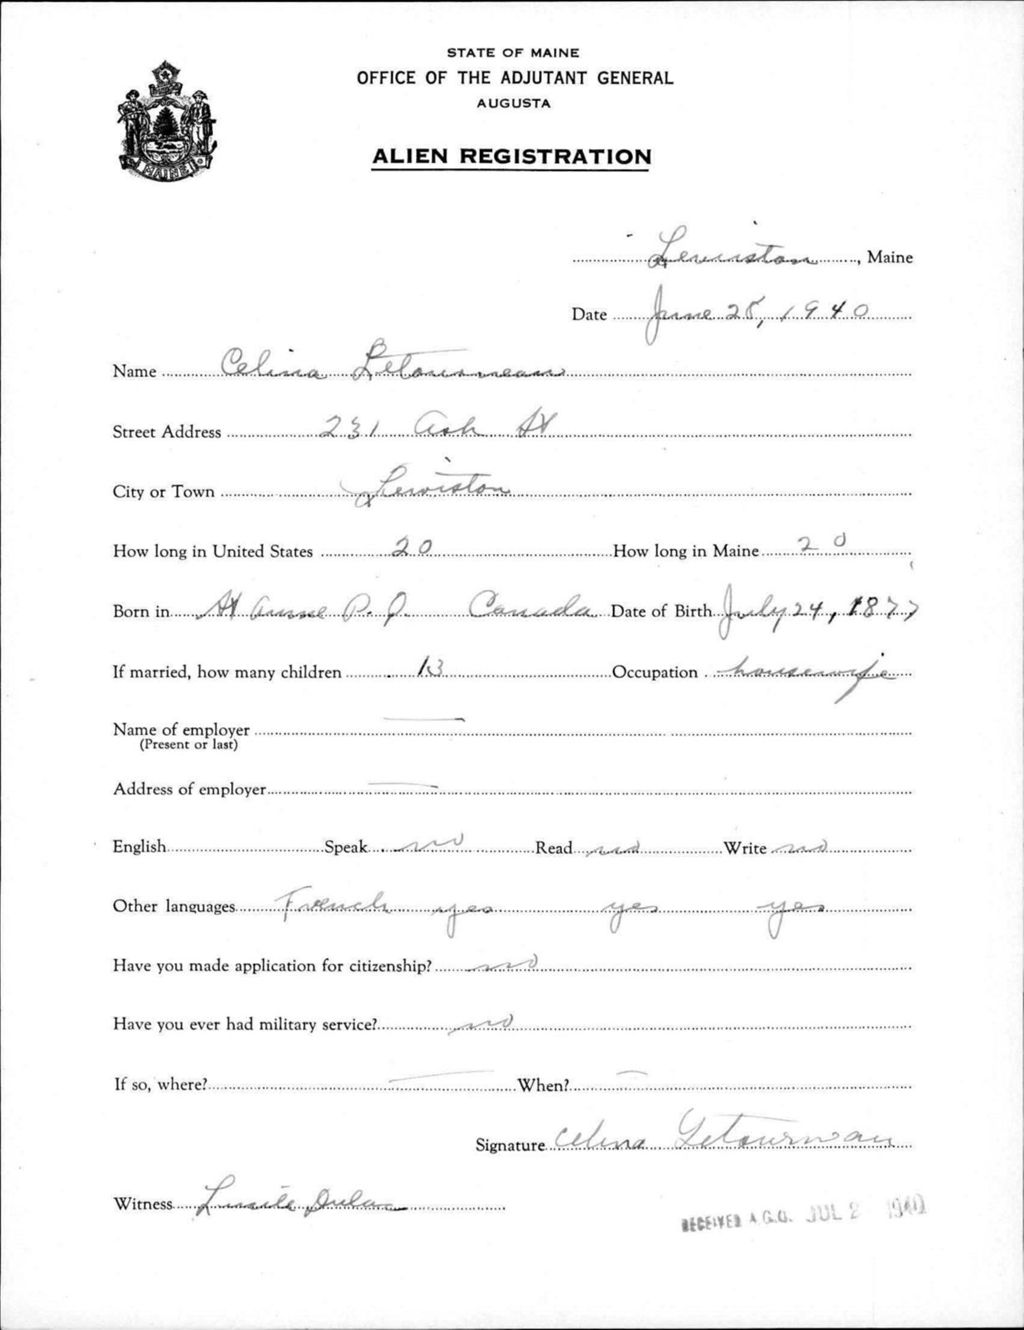 STATE OF MAINE
OFFICE OF THE ADJUTANT GENERAL
AUGUSTA
ALIEN REGISTRATION
MAINE
Lewiston, Maine
Date June 28, 1940
Name Celina Letourneau
Street Address 231 Ash St
City or Town Lewiston
How long in United States 20 How long in Maine 20
Born in St Anne P. Q. Canada Date of Birth July 24, 1877
If married, how many children 13 Occupation housewife
Name of employer —
(Present or last)
Address of employer —
English Speak no Read no Write no
Other languages French yes yes yes
Have you made application for citizenship? no
Have you ever had military service? no
If so, where? — When? —
Signature Celina Letourneau
Witness Lucille
RECEIVED A.G.O. JUL 2 1940